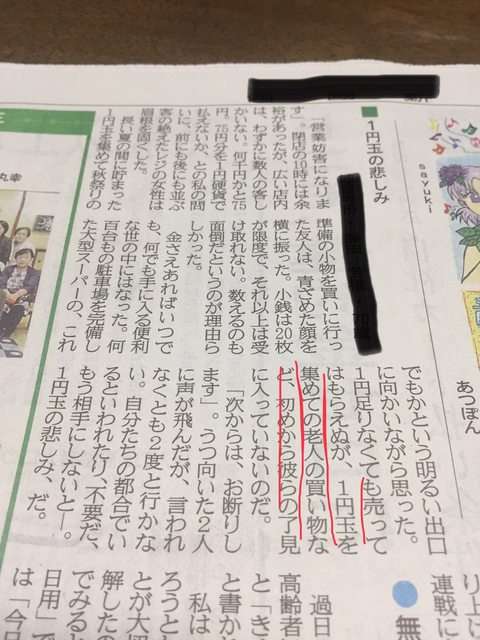 sayuki
あつぽん
1円玉の悲しみ
「営業妨害になりま
す」。閉店の10時には余
裕があったが、広い店内
は、わずかに数人の客し
かいない。何千円かと75
円。75円分を1円硬貨で
払えないか、との私の問
いに、前にも後にも並ぶ
客の絶えたレジの女性は
眉根を固くした。
長い夏の間に貯まった
1円玉を集めて秋祭りの
準備の小物を買いに行っ
た友人は、青ざめた顔を
横に振った。小銭は20枚
が限度で、それ以上は受
け取れない。数えるのも
面倒だというのが理由ら
しかった。
金さえあればいつで
も、何でも手に入る便利
な世の中にはなった。何
百台もの駐車場を完備し
た大型スーパーの、これ
でもかという明るい出口
に向かいながら思った。
1円足りなくても売って
はもらえぬが、1円玉を
集めての老人の買い物な
ど、初めから彼らの了見
に入っていないのだ。
「次からは、お断りし
ます」。うつ向いた2人
に声が飛んだが、言われ
なくとも2度と行かな
い。自分たちの都合でい
るといわれたり、不要だ、
もう相手にしないと―。
1円玉の悲しみ、だ。
丸幸
り上げ
連戦に
無
過日
高齢者
と「き
と書か
私は
ろうと
とが大
解したの
でみると
日用」で
は「今日